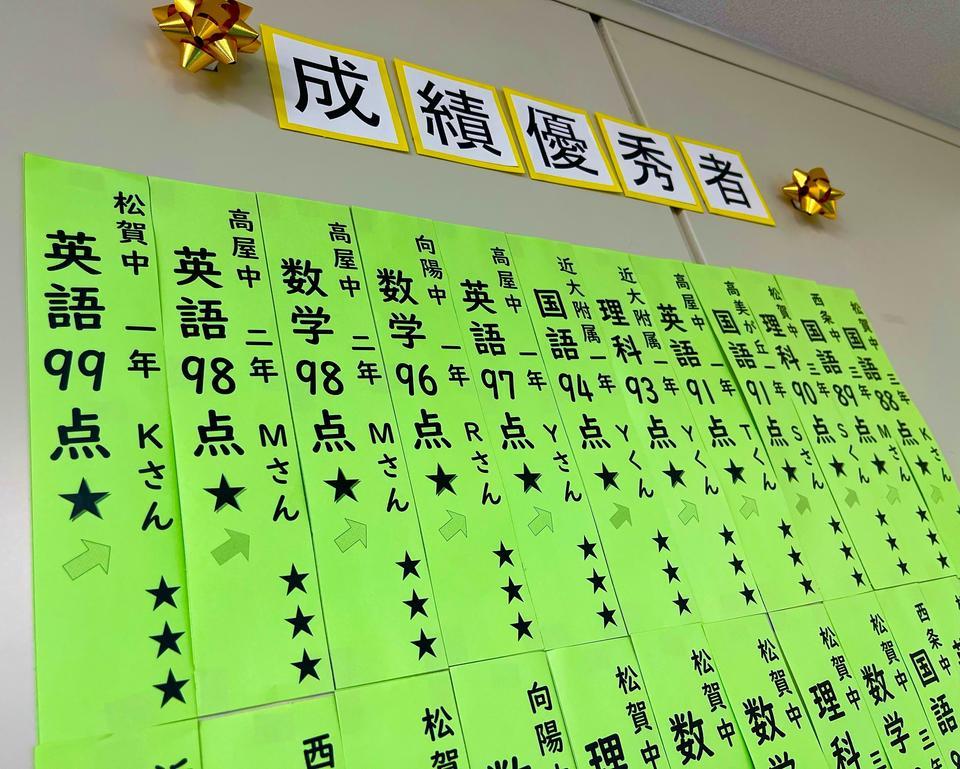 成績優秀者
松賀中 一年 Kさん
英語99点★
★★★
高屋中 二年 Mさん
英語98点★
★★★
高屋中 二年 Mさん
数学98点★
★★★
向陽中 一年 Rさん
数学96点★
★★★
高屋中 一年 Yさん
英語97点★
★★★
近大附属 一年 Yくん
国語94点★
★★★
近大附属 一年 Yくん
理科93点★
★★★
高屋中 一年 Tくん
英語91点★
★★★
高美が丘 一年 Sさん
国語91点★
★★★
松賀中 三年 Sさん
理科90点★
★★★
西条中 三年 Mさん
国語89点★
★★★
松賀中 三年 Kさん
国語88点★
★★★
西
松賀
向陽
数
松賀中
理
松賀中
数
松賀中
数学
松賀中 三
理科
松賀中 三年
数学
西条中
国語